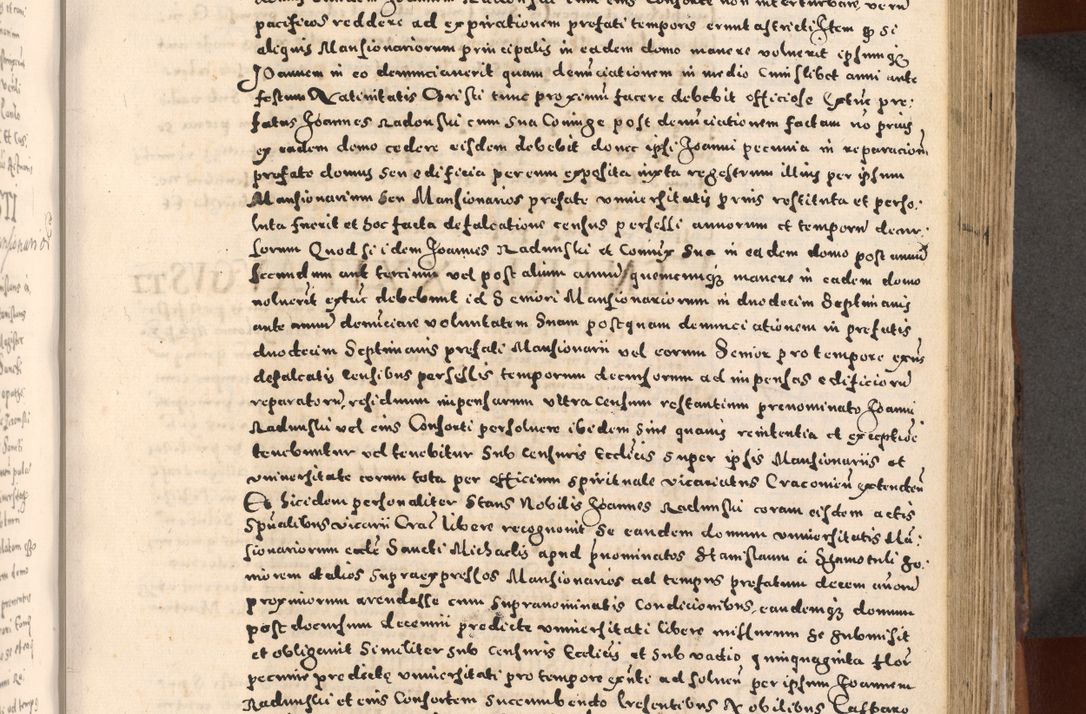 pacificos reddere ad expirationem prefati temporis erunt astricti Item ꝙ si
aliquis Mansionariorum principalis in eadem domo manere voluerit ipsumqꝫ
Joannem in eo denunciauerit quam denūciationem in medio cuiuslibet anni ante
festum Natiuitatis Christi tunc proximū facere debebit officiose Extūc pre⸗
fatus Joannes Radonski cum sua Coniuge post denūciationem factam nō prius
ex eadem domo cedere eisdem debebit donec ipsi Joanni pecunia in reparacionē
prefate domus seu edificia per eum exposita iuxta regestrum illius per ipsum
Mansionarium seu Mansionarios prefate vniuersitatis prius restituta et perso⸗
luta fuerit et hoc facta defalcatione census perselli annorum et temporū decur⸗
sorum Quod si idem Joannes Radunski et Coniux sua in eadem domo post annū
secundum aut tercium vel post alium annū quemcumqꝫ manere in eadem domo
noluerit extūc debebunt id Seniori Mansionariorum in duodecim Septimanis
ante annū denūciare voluntatem suam postquam denunciationem in prefatis
duodecim Septimanis prefati Mansionarii vel eorum Senior pro tempore exn̄s
defalcatis censibus persellis temporum decursorum ad impensas edificiorū
reparatorū, residuum impensarum vltra censum restantium prenominato Joanni
Radunski vel eius Consorti persoluere ibidem sine quauis renitentia et exceptiōe
tenebuntur vel tenebitur sub censuris Ecclēis super ipsis Mansionariis et
vniuersitate eorum tota per officium spirituale vicariatus Cracouien̄ extenden̄
Et hicidem personaliter stans Nobilis Joannes Radunski coram eisdem actis
Spūalibus vicarii Crac̄ libere recognouit se eandem domum vniuersitatis Mā⸗
sionariorum eccłē Sancti Michaelis apud pnominatos Stanislaum a Shamotuli se⸗
niorem et alios supraexpressos Mansionarios ad tempus prefatum decem annorū
proximorum arendasse cum supranominatis Condicionibus, eandemqꝫ domum
post decursum decennii predicte vniuersitati libere missurum se submisit
et obligauit similiter sub censuris Ecclēis et sub vadio quinquaginta flor
pecunie predicte vniuersitati pro tempore exn̄ti ad soluen̄ per ipsum Joannem
Radunski et eius Consortem succumbendo Presentibus Nobilibus Casparo